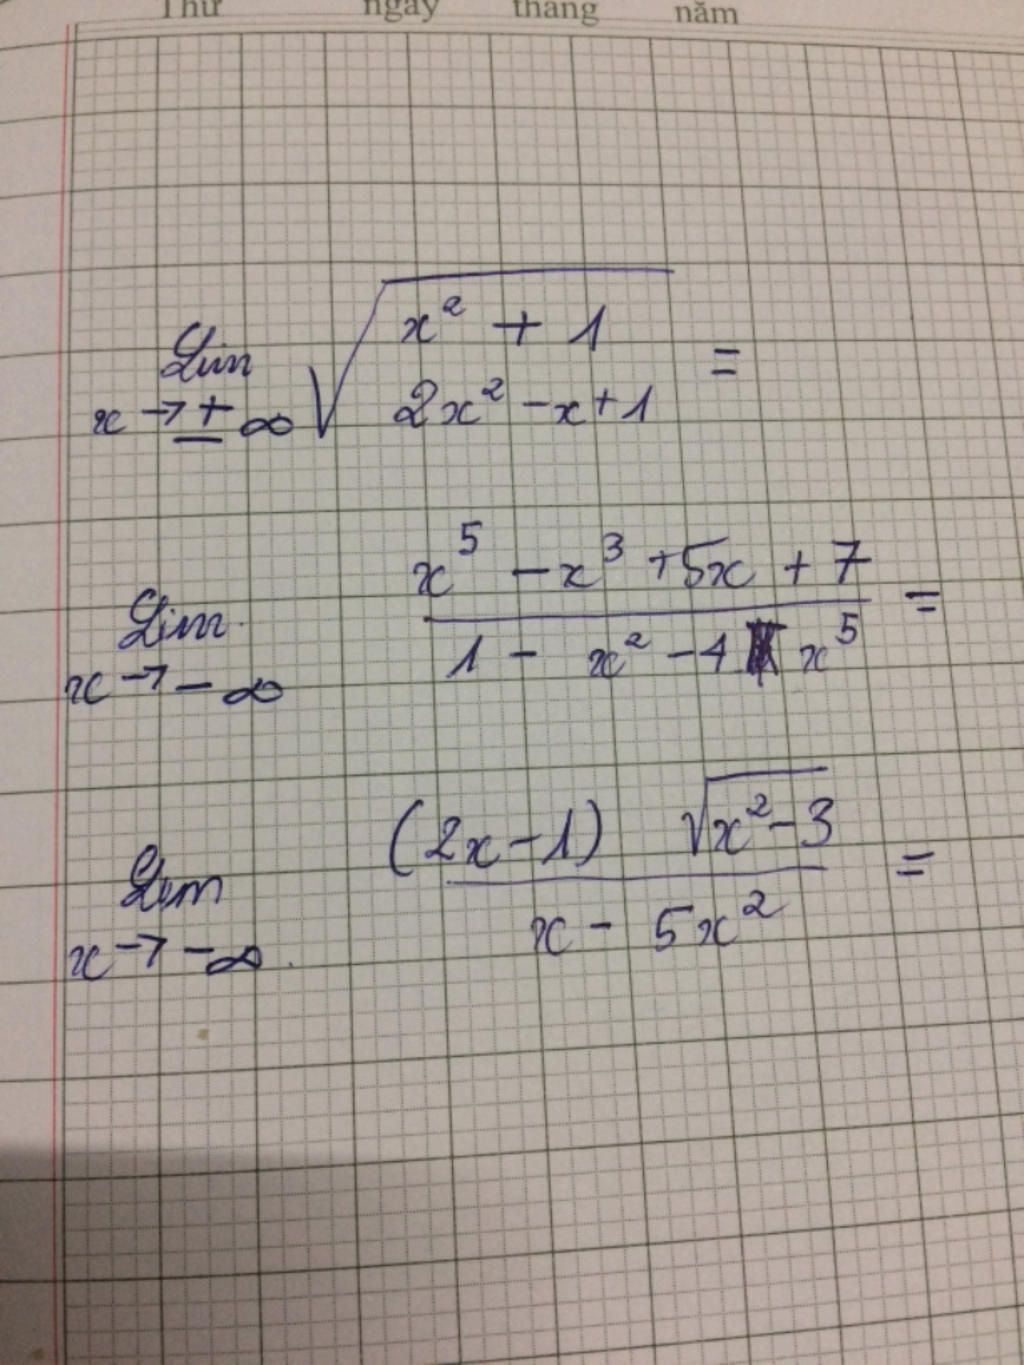 Thứ ngày tháng năm
Lim x→±∞ √(x² + 1 2x² - x + 1) =
Lim x→-∞ (x⁵ - x³ + 5x + 7)/(1 - x² - 4x⁵) =
Lim x→-∞. ((2x-1) √(x²-3))/(x - 5x²) =